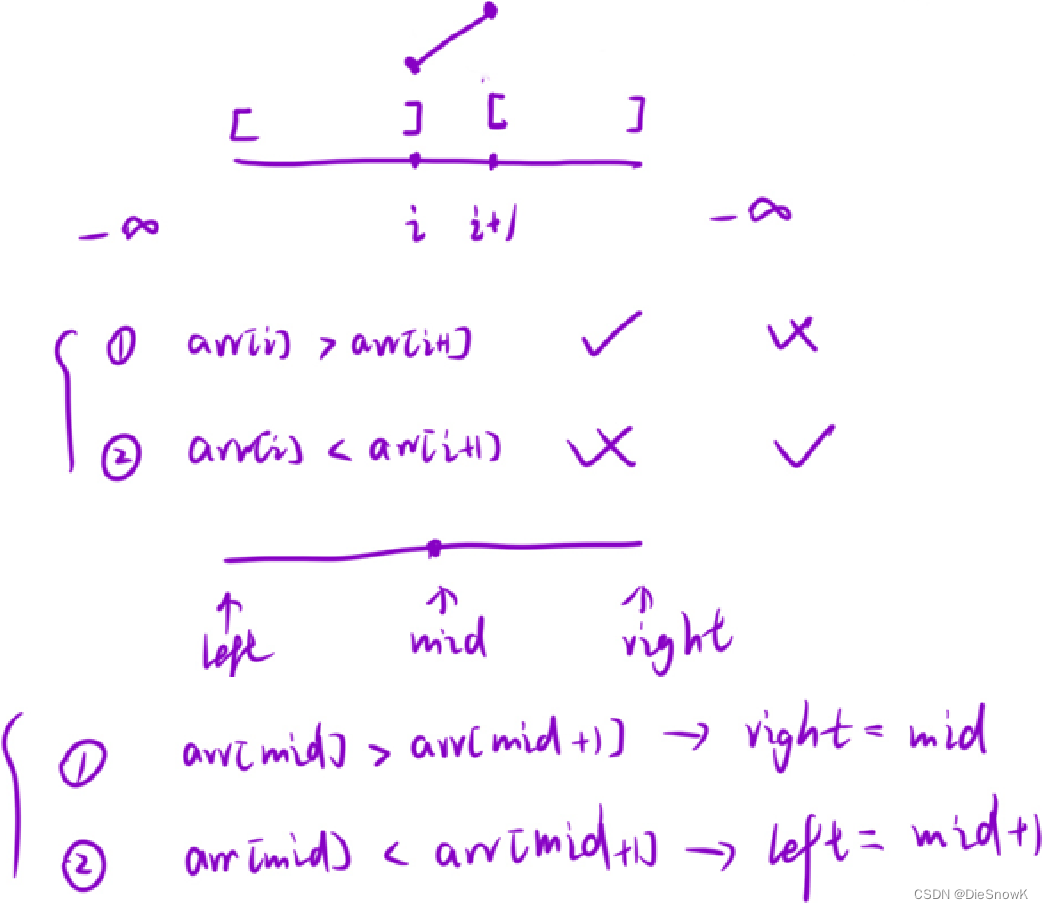 [ ] [ ]
i i+1
-∞ -∞
① arr[i] > arr[i+1] ✓ ✓×
② arr[i] < arr[i+1] ✓× ✓
↑ ↑ ↑
left mid right
① arr[mid] > arr[mid+1] → right = mid
② arr[mid] < arr[mid+1] → left = mid+1
CSDN @DieSnowK